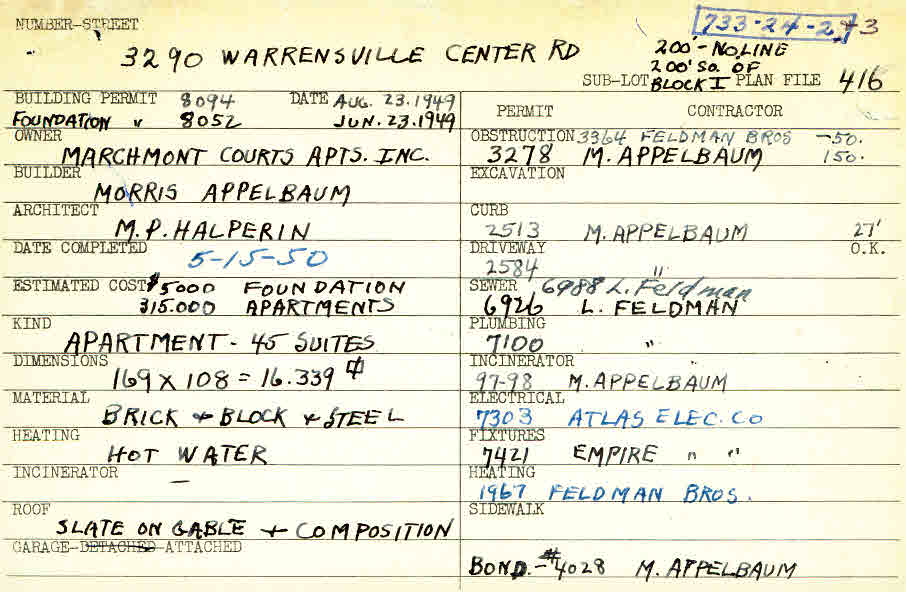 NUMBER-STREET
733-24-2
3290 WARRENSVILLE CENTER RD
200'-NO.LINE
200' SO. OF
SUB-LOT BLOCK I PLAN FILE 416
BUILDING PERMIT 8094 DATE AUG. 23.1949
FOUNDATION " 8052 JUN. 23.1949
OWNER
MARCHMONT COURTS APTS. INC.
BUILDER
MORRIS APPELBAUM
ARCHITECT
M.P. HALPERIN
DATE COMPLETED
5-15-50
ESTIMATED COST $5000 FOUNDATION
315.000 APARTMENTS
KIND
APARTMENT - 45 SUITES
DIMENSIONS
169 X 108 = 16.339
MATERIAL
BRICK + BLOCK + STEEL
HEATING
HOT WATER
INCINERATOR
—
ROOF
SLATE ON GABLE + COMPOSITION
GARAGE-DETACHED-ATTACHED
PERMIT CONTRACTOR
OBSTRUCTION 3364 FELDMAN BROS -50.
3278 M. APPELBAUM 150.
EXCAVATION
CURB
2513 M. APPELBAUM 27'
DRIVEWAY O.K.
2584 "
SEWER 6988 L. Feldman
6926 L. FELDMAN
PLUMBING
7100 " "
INCINERATOR
97-98 M. APPELBAUM
ELECTRICAL
7303 ATLAS ELEC. CO
FIXTURES
7421 EMPIRE " "
HEATING
1967 FELDMAN BROS.
SIDEWALK
BOND.-#4028 M. APPELBAUM